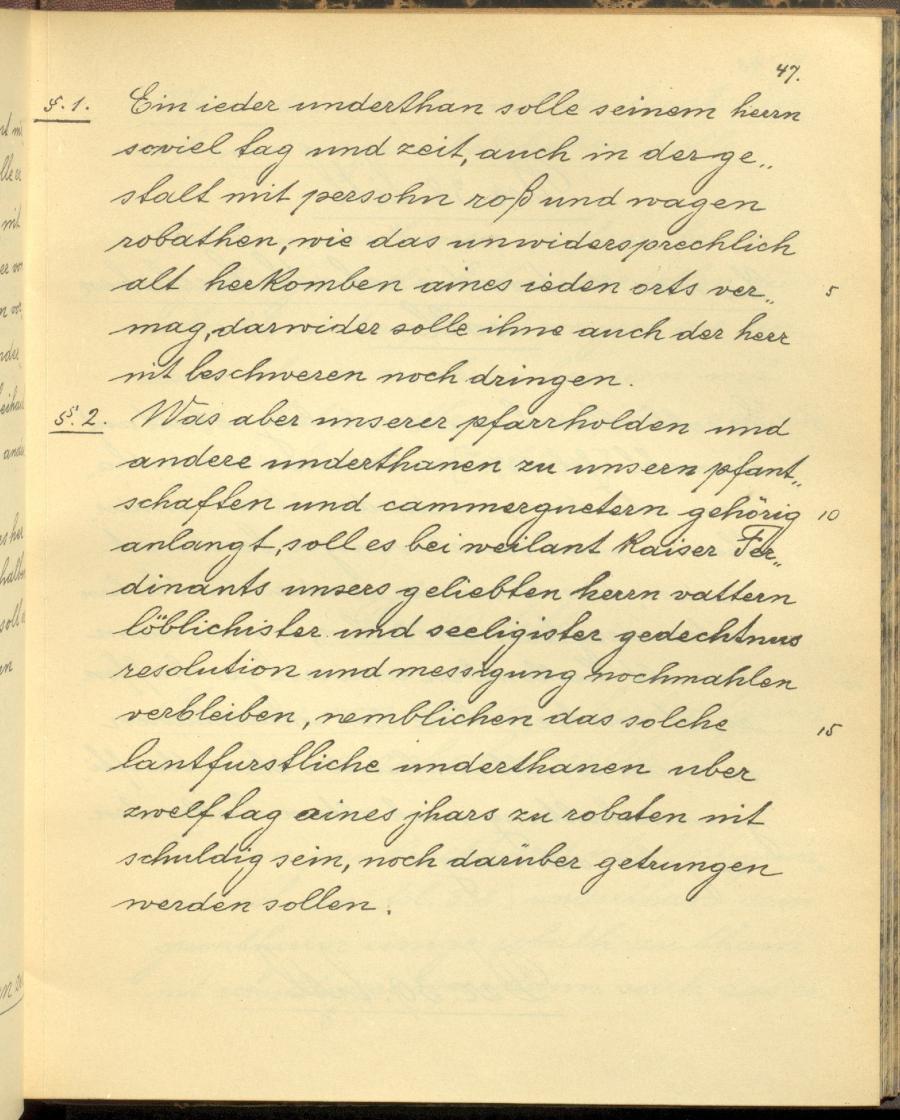 47.
§. 1. Ein ieder underthan solle seinem herrn
soviel tag und zeit, auch in der ge„
stalt mit persohn roß und wagen
robathen, wie das unwidersprechlich
alt herkomben aines ieden orts ver„ 5
mag, darwider solle ihme auch der herr
nit beschweren noch dringen.
§. 2. Was aber unserer pfarrholden und
andere underthanen zu unsern pfant„
schaften und cammerguetern gehörig 10
anlangt, soll es bei weilant Kaiser Fer„
dinants unsers geliebten herrn vattern
löblichister und seeligister gedechtnus
resolution und messigung nochmahlen
verbleiben, nemblichen das solche 15
lantfurstliche underthanen uber
zwelf tag aines jhars zu robaten nit
schuldig sein, noch darüber getrungen
werden sollen.